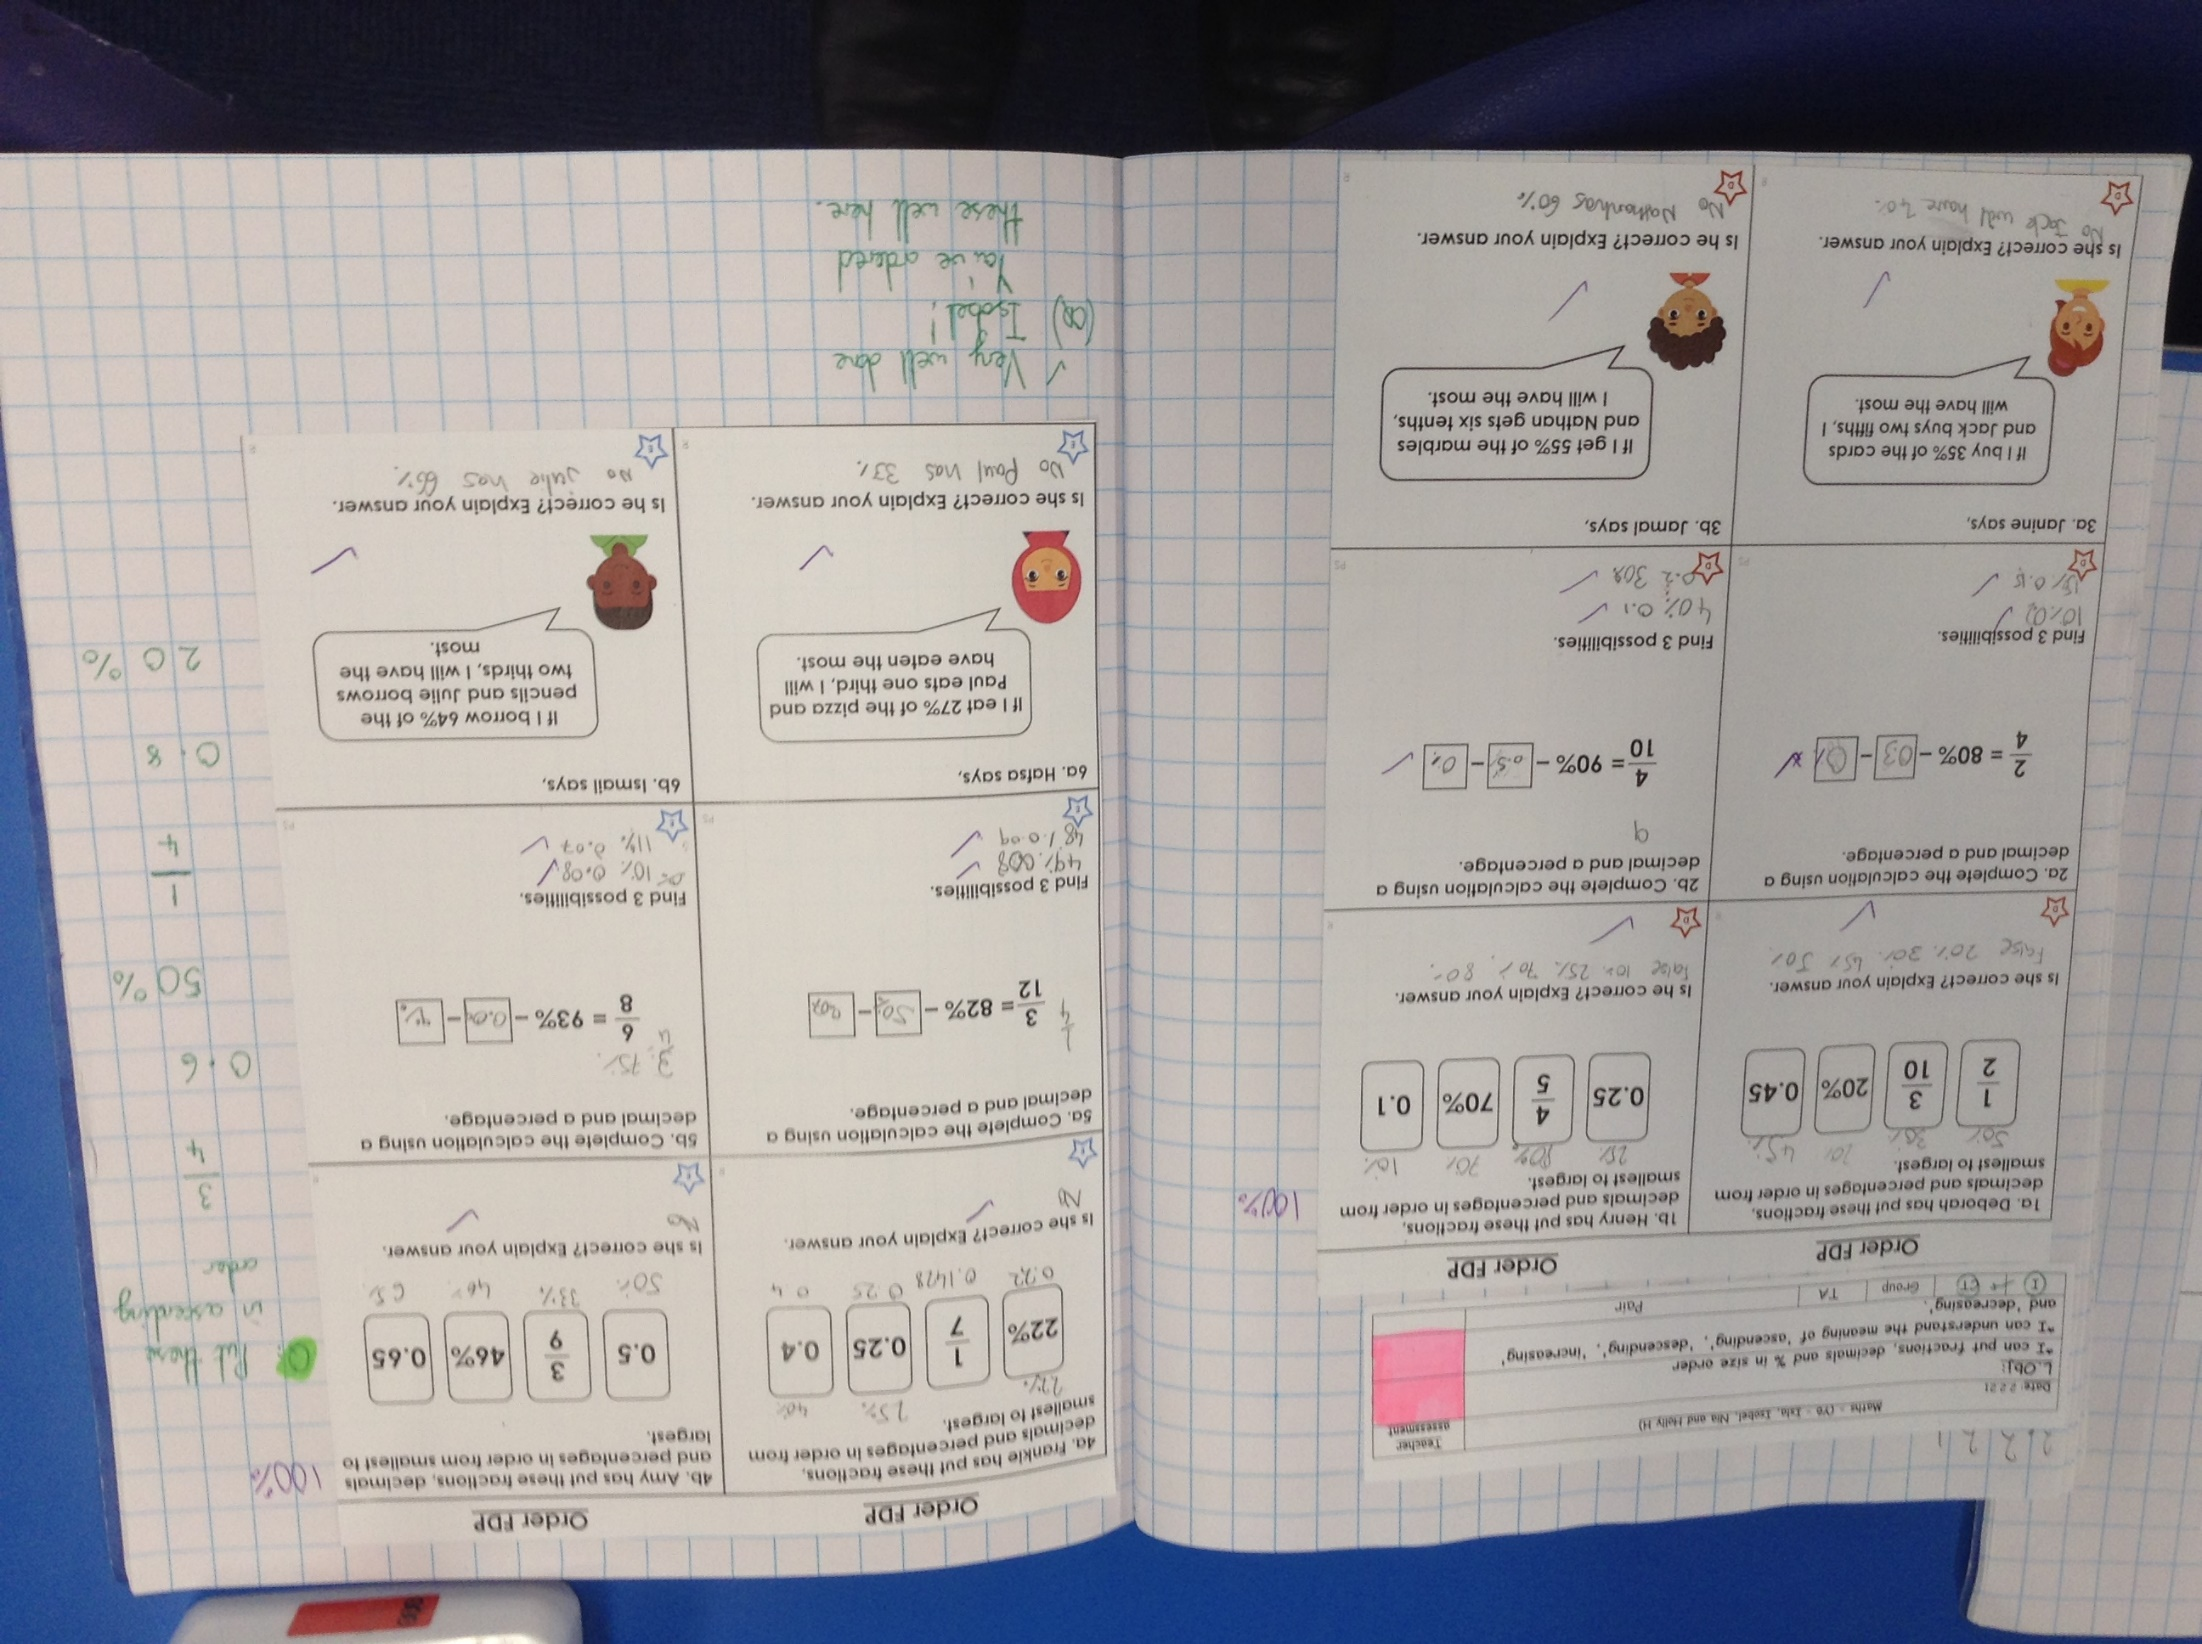 2 2 2 1
Maths - (Y6 - Isla, Isobel, Nia and Holly H)
Date: 2 2 21
L.Obj:
*I can put fractions, decimals and % in size order
*I can understand the meaning of 'ascending', 'descending', 'increasing'
and 'decreasing'.
Teacher
assessment
I
CT
Group
TA
Pair
Order FDP
1a. Deborah has put these fractions,
decimals and percentages in order from
smallest to largest.
50% 30% 20% 45%
1/2 3/10 20% 0.45
Is she correct? Explain your answer.
False 20% 30% 45% 50%
D
R
Order FDP
1b. Henry has put these fractions,
decimals and percentages in order from
smallest to largest.
100%
25% 80% 70% 10%
0.25 4/5 70% 0.1
Is he correct? Explain your answer.
False 10% 25% 70% 80%
D
R
2a. Complete the calculation using a
decimal and a percentage.
2/4 = 80% - -
Find 3 possibilities.
15% 0.15
D
PS
2b. Complete the calculation using a
decimal and a percentage.
9
4/10 = 90% - -
Find 3 possibilities.
40% 0.1
0.2 30%
D
PS
3a. Janine says,
If I buy 35% of the cards
and Jack buys two fifths, I
will have the most.
Is she correct? Explain your answer.
No Jack will have 40%
D
R
3b. Jamal says,
If I get 55% of the marbles
and Nathan gets six tenths,
I will have the most.
Is he correct? Explain your answer.
No Nathan has 60%
D
R
Order FDP
4a. Frankie has put these fractions,
decimals and percentages in order from
smallest to largest.
22% 25% 40%
22% 1/7 0.25 0.4
0.22 0.1428 0.25 0.4
Is she correct? Explain your answer.
No
E
R
Order FDP
4b. Amy has put these fractions, decimals
and percentages in order from smallest to
largest.
100%
0.5 3/9 46% 0.65
50% 33% 46%
Is she correct? Explain your answer.
No
E
R
5a. Complete the calculation using a
decimal and a percentage.
1/4
3/12 = 82% - -
Find 3 possibilities.
49% 0.08
48% 0.09
E
PS
5b. Complete the calculation using a
decimal and a percentage.
3/4 75%
6/8 = 93% - -
Find 3 possibilities.
10% 0.08
11% 0.07
E
PS
6a. Hafsa says,
If I eat 27% of the pizza and
Paul eats one third, I will
have eaten the most.
Is she correct? Explain your answer.
No Paul has 33%
E
R
6b. Ismail says,
If I borrow 64% of the
pencils and Julie borrows
two thirds, I will have the
most.
Is he correct? Explain your answer.
No Julie has 66%
E
R
Very well done
Isobel!
You've ordered
these well here.
Put these
in ascending
order
3/4
0.6
50%
1/4
0.8
20%